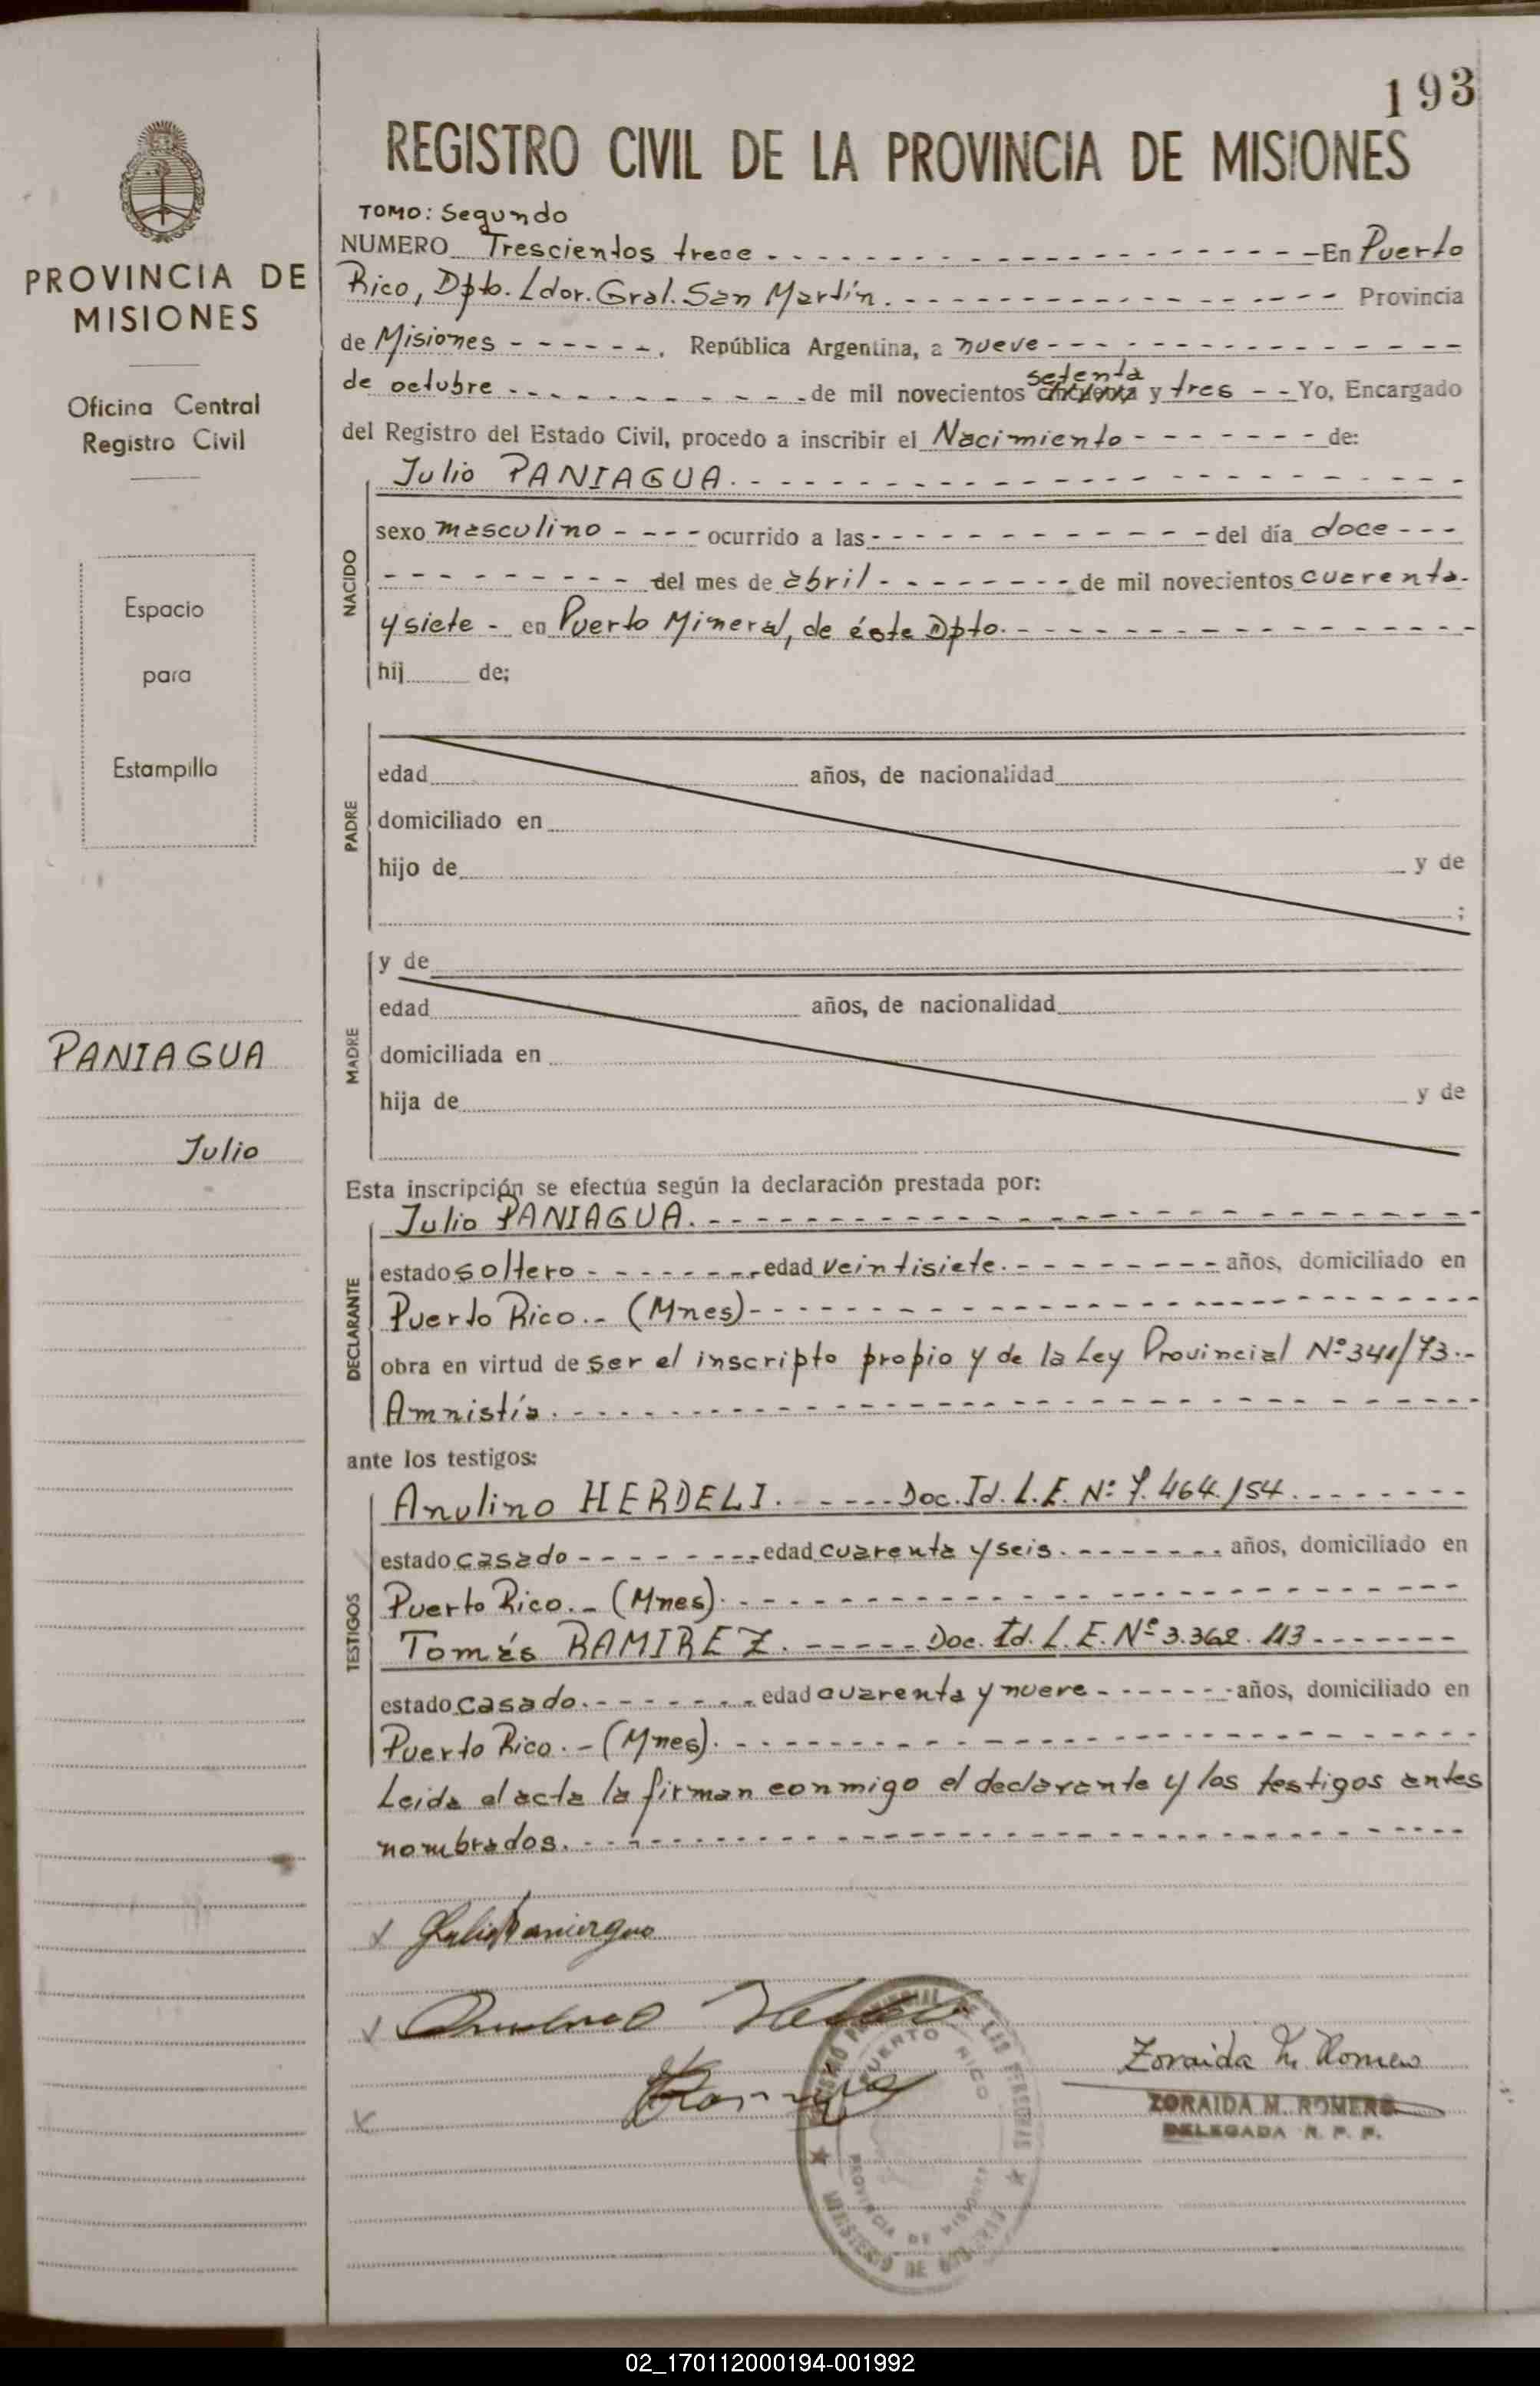 193
REGISTRO CIVIL DE LA PROVINCIA DE MISIONES
PROVINCIA DE
MISIONES
Oficina Central
Registro Civil
Espacio
para
Estampilla
PANIAGUA
Julio
TOMO: Segundo
NUMERO Trescientos trece - En Puerto
Rico, Dpto. Ldor. Gral. San Martín. - Provincia
de Misiones - , República Argentina, a nueve -
de octubre - de mil novecientos setenta y tres - - Yo, Encargado
del Registro del Estado Civil, procedo a inscribir el Nacimiento - de:
NACIDO
Julio PANIAGUA. -
sexo masculino - ocurrido a las - del día doce -
- del mes de abril - de mil novecientos cuarenta -
y siete - en Puerto Mineral, de éste Dpto. -
hij de;
PADRE
edad años, de nacionalidad
domiciliado en
hijo de y de
;
MADRE
y de
edad años, de nacionalidad
domiciliada en
hija de y de
Esta inscripción se efectúa según la declaración prestada por:
DECLARANTE
Julio PANIAGUA. -
estado soltero - edad veintisiete. - años, domiciliado en
Puerto Rico. - (Mnes) -
obra en virtud de ser el inscripto propio y de la Ley Provincial Nº 341/73. -
Amnistía. -
ante los testigos:
TESTIGOS
Anulino HERDELI. - Doc. Id. L.E. Nº 7.464.154. -
estado casado - edad cuarenta y seis. - años, domiciliado en
Puerto Rico. - (Mnes). -
Tomás RAMIREZ. - Doc. Id. L.E. Nº 3.362.113. -
estado casado. - edad cuarenta y nueve - años, domiciliado en
Puerto Rico. - (Mnes). -
Leida el acta la firman conmigo el declarante y los testigos antes
nombrados. -
Julio Paniagua
Zoraida M. Romero
ZORAIDA M. ROMERO
DELEGADA R. P. P.
PUERTO RICO
PROVINCIA DE MISIONES
MINISTERIO DE GOBIERNO
02_170112000194-001992